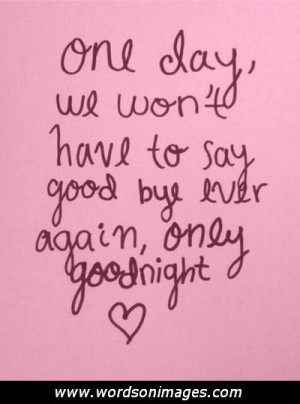 one day,
we won't
have to say
good bye ever
again, only
goodnight
www.wordsonimages.com